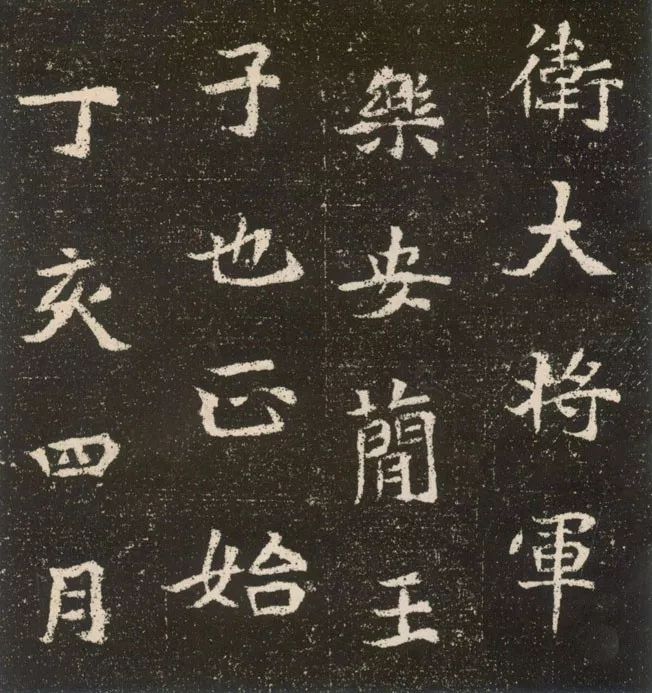 衛大將軍
樂安簡王
子也正始
丁亥四月